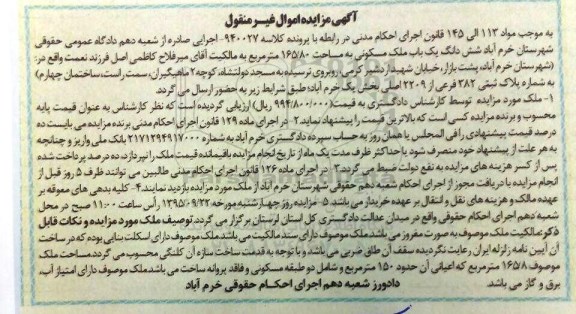 آگهی مزایده اموال غیر منقول
به موجب مواد ۱۱۳ الی ۱۴۵ قانون اجرای احکام مدنی در رابطه با پرونده کلاسه ۹۴۰۰۲۷- اجرایی صادره از شعبه دهم دادگاه عمومی حقوقی
شهرستان خرم آباد شش دانگ یک باب ملک مسکونی به مساحت ۱۶۵/۸۰ مترمربع به مالکیت آقای میرفلاح کاظمی اصل فرزند نعمت واقع در:
(شهرستان خرم آباد، پشت بازار، خیابان شهید اردشیر کرمی، روبروی نرسیده به مسجد دولتشاه، کوچه ۲ ماهیگیران، سمت راست، ساختمان چهارم)
به شماره پلاک ثبتی ۳۸۲ فرعی از ۲۲۰۹ اصلی بخش یک خرم آباد؛ طبق شرایط زیر به حضور ارسال می گردد.
۱- ملک مورد مزایده توسط کارشناس دادگستری به قیمت (۹۹۴/۸۰۰/۰۰۰ ریال) ارزیابی گردیده است که نظر کارشناس به عنوان قیمت پایه
محسوب و برنده مزایده کسی است که بالاترین قیمت را پیشنهاد نماید ۲- در اجرای ماده ۱۲۹ قانون اجرای احکام مدنی برنده مزایده می بایست ده
درصد قیمت پیشنهادی را فی المجلس یا همان روز به حساب سپرده دادگستری خرم آباد به شماره ۲۱۷۱۲۹۴۹۱۷۰۰۰ بانک ملی واریز و چنانچه
به هر علت از پیشنهاد خود منصرف شود یا حداکثر ظرف مدت یک ماه از تاریخ انجام مزایده باقیمانده قیمت ملک را نپردازد، ده درصد پرداخت شده
پس از کسر هزینه های مزایده به نفع دولت ضبط می گردد. ۳- در اجرای ماده ۱۲۶ قانون اجرای احکام مدنی طالبین می توانند ظرف ۵ روز قبل از
انجام مزایده با دریافت مجوز از اجرای احکام شعبه دهم حقوقی شهرستان خرم آباد از ملک مورد مزایده بازدید نمایند. ۴- کلیه بدهی های معوقه بر
عهده مالک و هزینه های نقل و انتقال بر عهده خریدار می باشد. ۵- مزایده روز چهارشنبه مورخه ۱۳۹۵/۰۹/۲۲ رأس ساعت ۱۱:۰۰ صبح در محل
شعبه دهم اجرای احکام حقوقی واقع در میدان عدالت دادگستری کل استان لرستان برگزار می گردد. توصیف ملک مورد مزایده و نکات قابل
ذکر: مالکیت ملک موصوف به صورت مفروز می باشد. ملک موصوف دارای سند مالکیت می باشد. ملک موصوف دارای اسکلت بنایی بوده که در ساخت
آن آیین نامه زلزله ایران رعایت نگردیده سقف آن طاق ضربی می باشد. و با توجه به قدمت ساخت سازه آن کلنگی محسوب می گردد. مساحت ملک
موصوف ۱۶۵/۸ مترمربع که اعیانی آن حدود ۱۵۰ مترمربع و شامل دو طبقه مسکونی و فاقد پروانه ساخت می باشد. ملک موصوف دارای امتیاز آب،
برق و گاز می باشد.
دادورز شعبه دهم اجرای احکام حقوقی خرم آباد